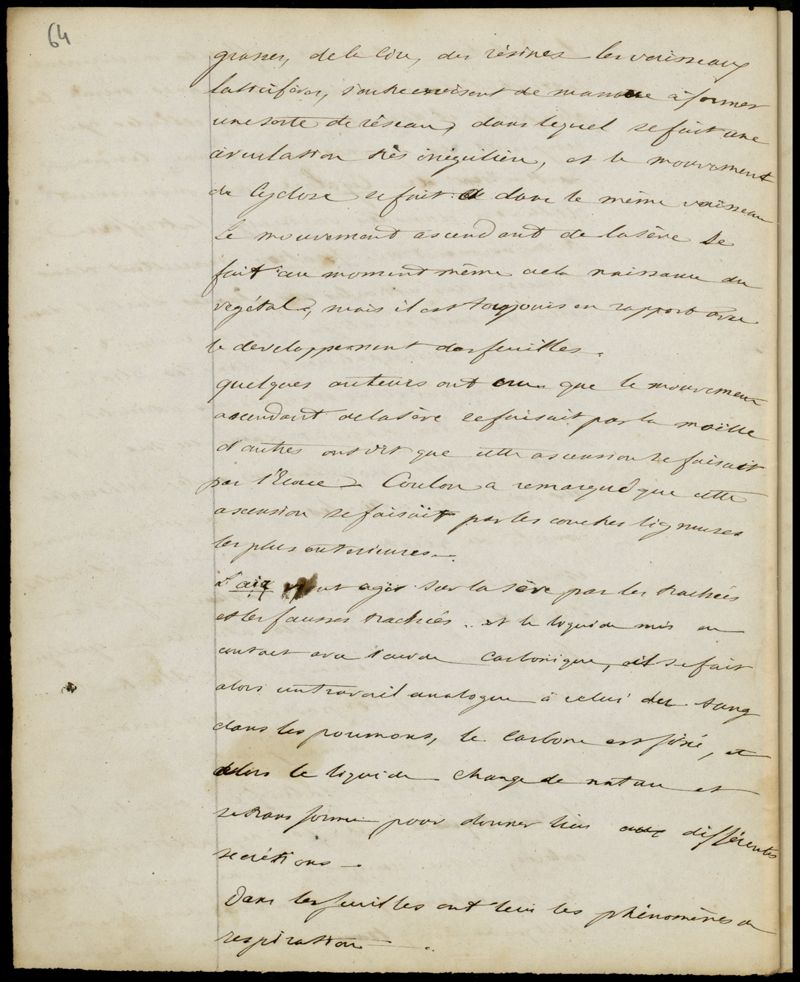 64
grasses, de la cire, des résines les vaisseaux
laticifères, s'entrecroisent de manière à former
une sorte de réseau, dans lequel se fait une
circulation très irrégulière, et le mouvement
de Cyclose se fait dans le même vaisseau
Le mouvement ascendant de la sève se
fait au moment même de la naissance du
végétal, mais il est toujours en rapport avec
le developpement des feuilles.
quelques auteurs ont cru que le mouvement
ascendant de la sève se faisait par la moëlle
d'autres ont dit que cette ascension se faisait
par l'Ecorce. Coulon a remarqué que cette
ascension se faisait par les couches ligneuses
les plus exterieures.
L'air vient agir sur la sève par les trachées
et les fausses trachées.. et le liquide mis en
contact avec l'acide carbonique, il se fait
alors un travail analogue à celui du sang
dans les poumons, le carbone est fixé, et
alors le liquide change de nature et
se transforme pour donner lieu aux différentes
secrétions.
Dans les feuilles ont lieu les phénomènes de
respiration.